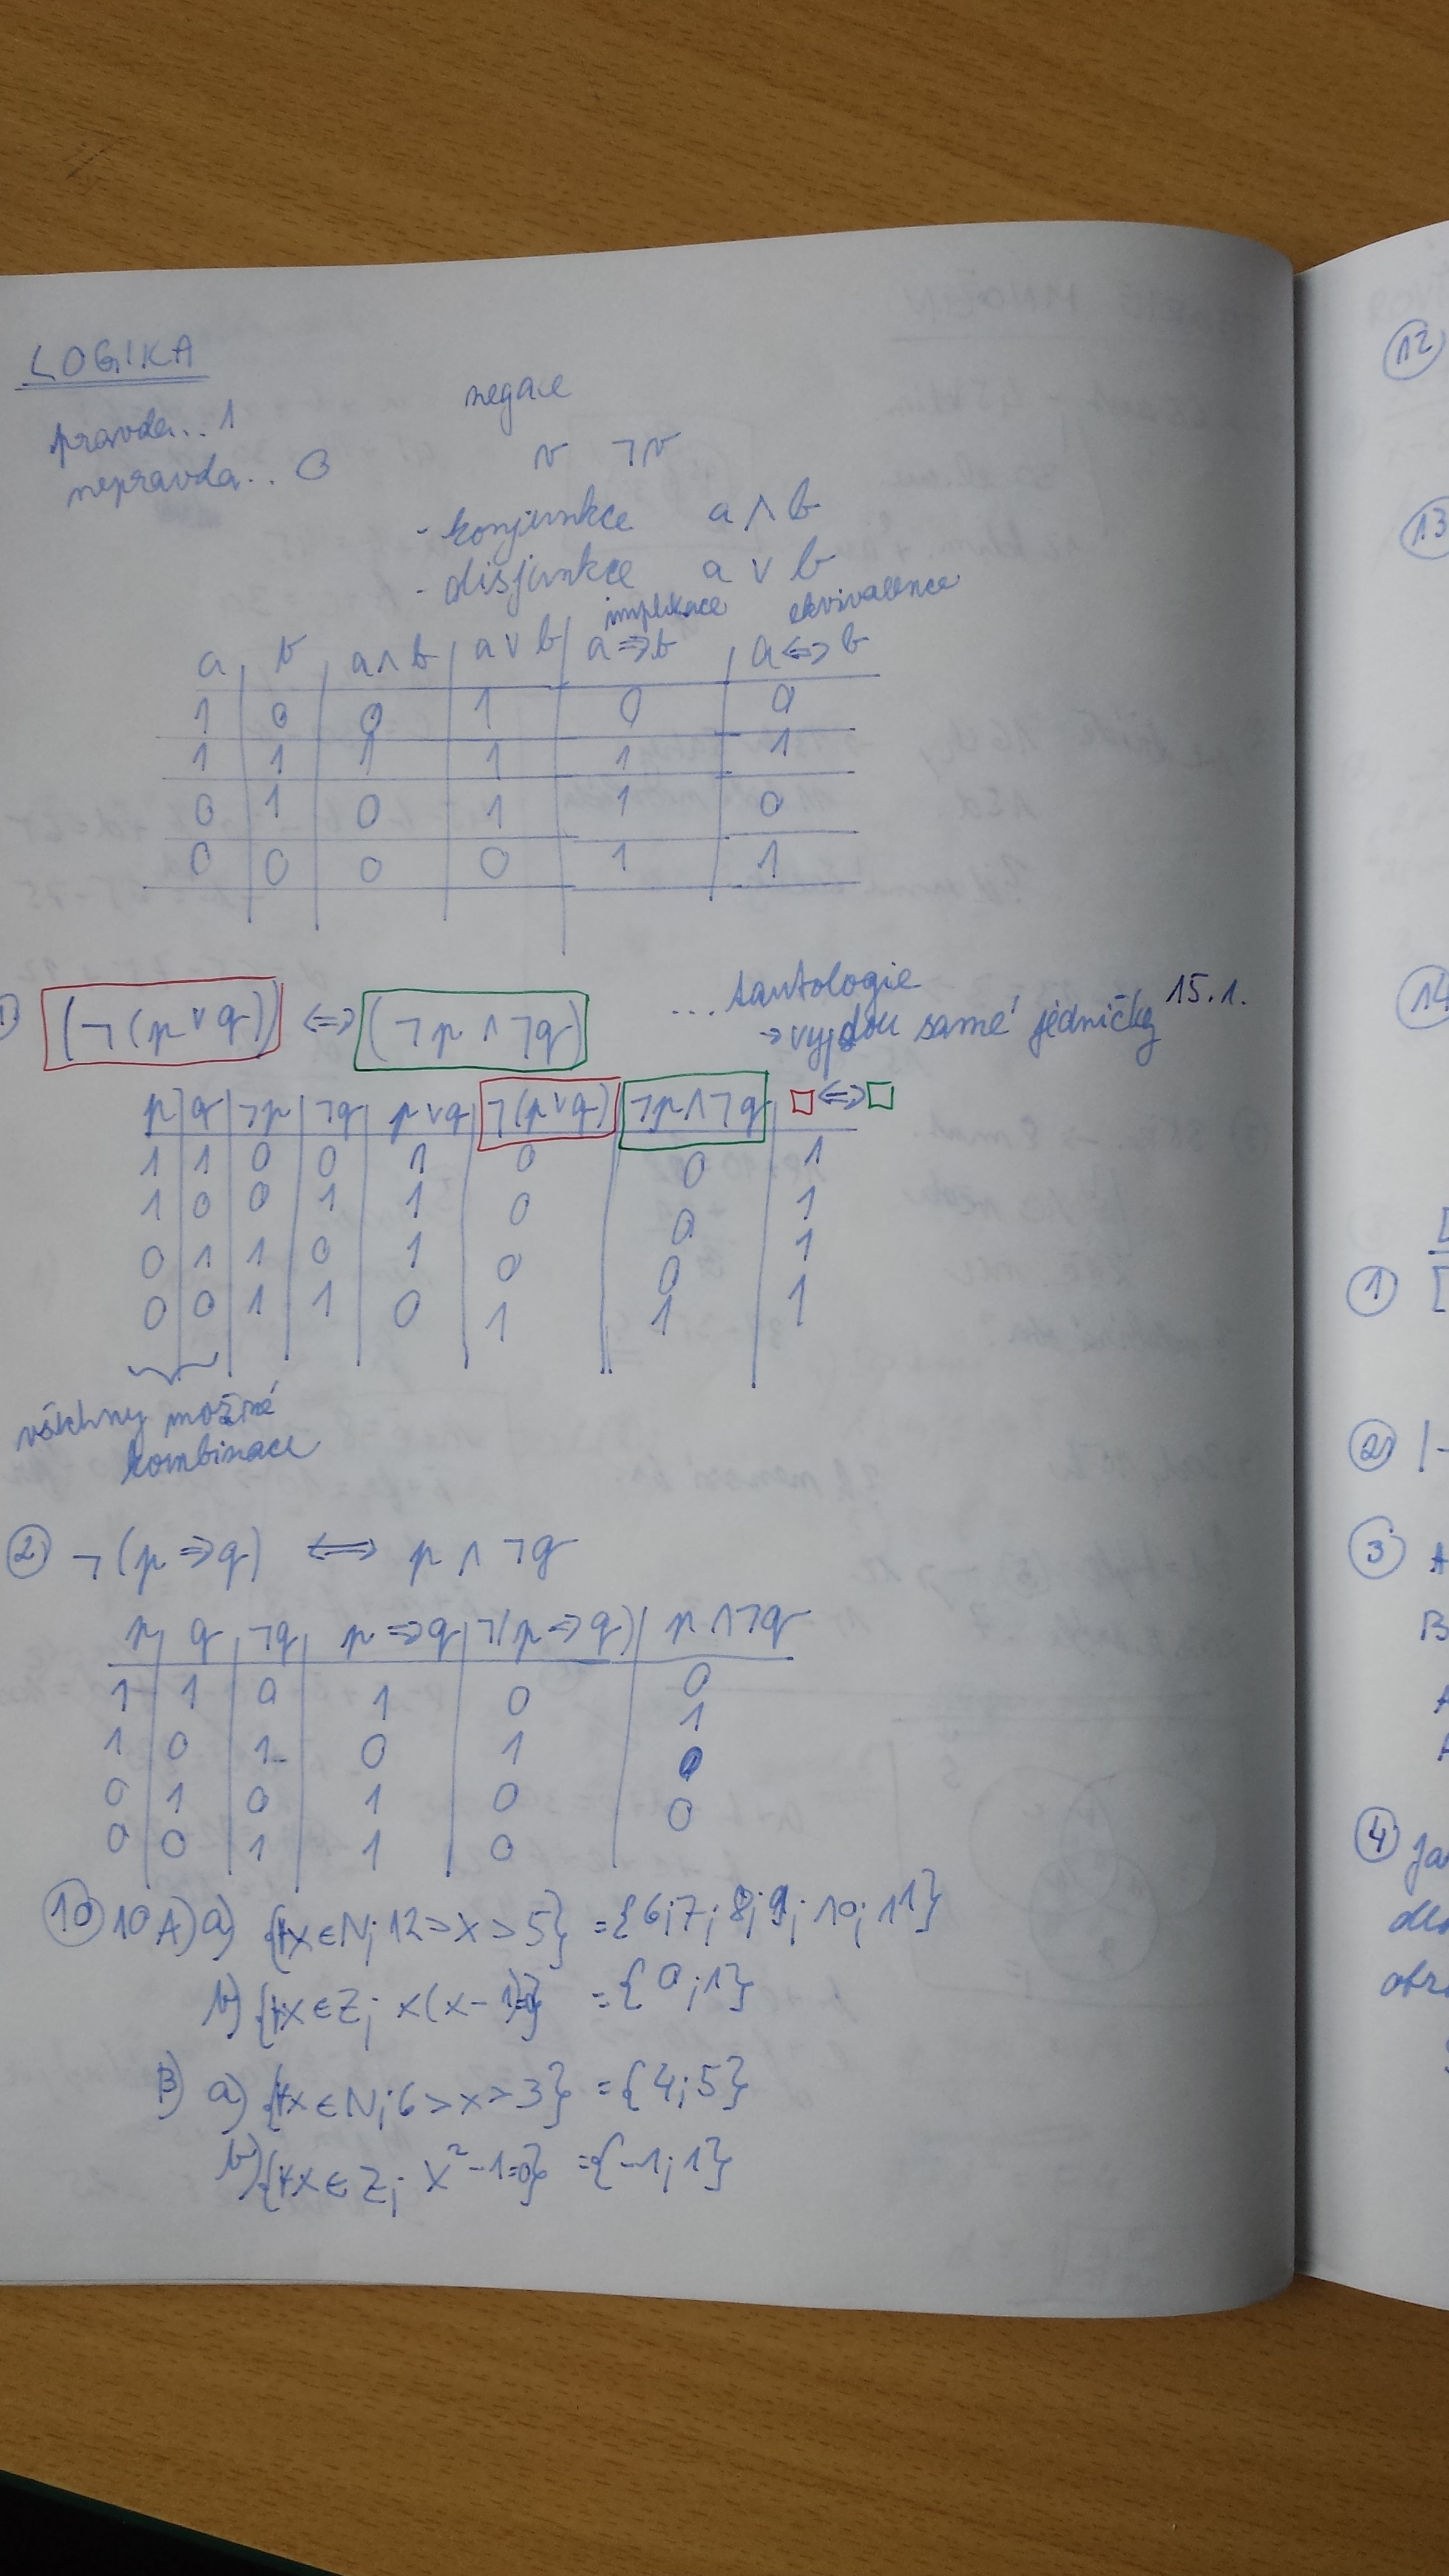 LOGIKA
pravda.. 1
nepravda.. 0
negace
v ¬v
- konjunkce a ∧ b
- disjunkce a ∨ b
implikace ekvivalence
a b a∧b a∨b a⇒b a⇔b
1 0 0 1 0 0
1 1 1 1 1 1
0 1 0 1 1 0
0 0 0 0 1 1
1) (¬(p∨q)) ⇔ (¬p ∧ ¬q) ... tautologie
→ vyjdou samé jedničky 15.1.
p q ¬p ¬q p∨q ¬(p∨q) ¬p∧¬q □⇔□
1 1 0 0 1 0 0 1
1 0 0 1 1 0 0 1
0 1 1 0 1 0 0 1
0 0 1 1 0 1 1 1
všechny možné
kombinace
2) ¬(p⇒q) ⇔ p ∧ ¬q
p q ¬q p⇒q ¬(p⇒q) p∧¬q
1 1 0 1 0 0
1 0 1 0 1 1
0 1 0 1 0 0
0 0 1 1 0 0
10) 10A) a) {∀x∈N; 12>x>5} = {6;7;8;9;10;11}
b) {∀x∈Z; x(x-1)=0} = {0;1}
B) a) {∀x∈N; 6>x>3} = {4;5}
b) {∀x∈Z; x²-1=0} = {-1;1}
12
13
14
1
2
3 A
B
A
A
4 ja